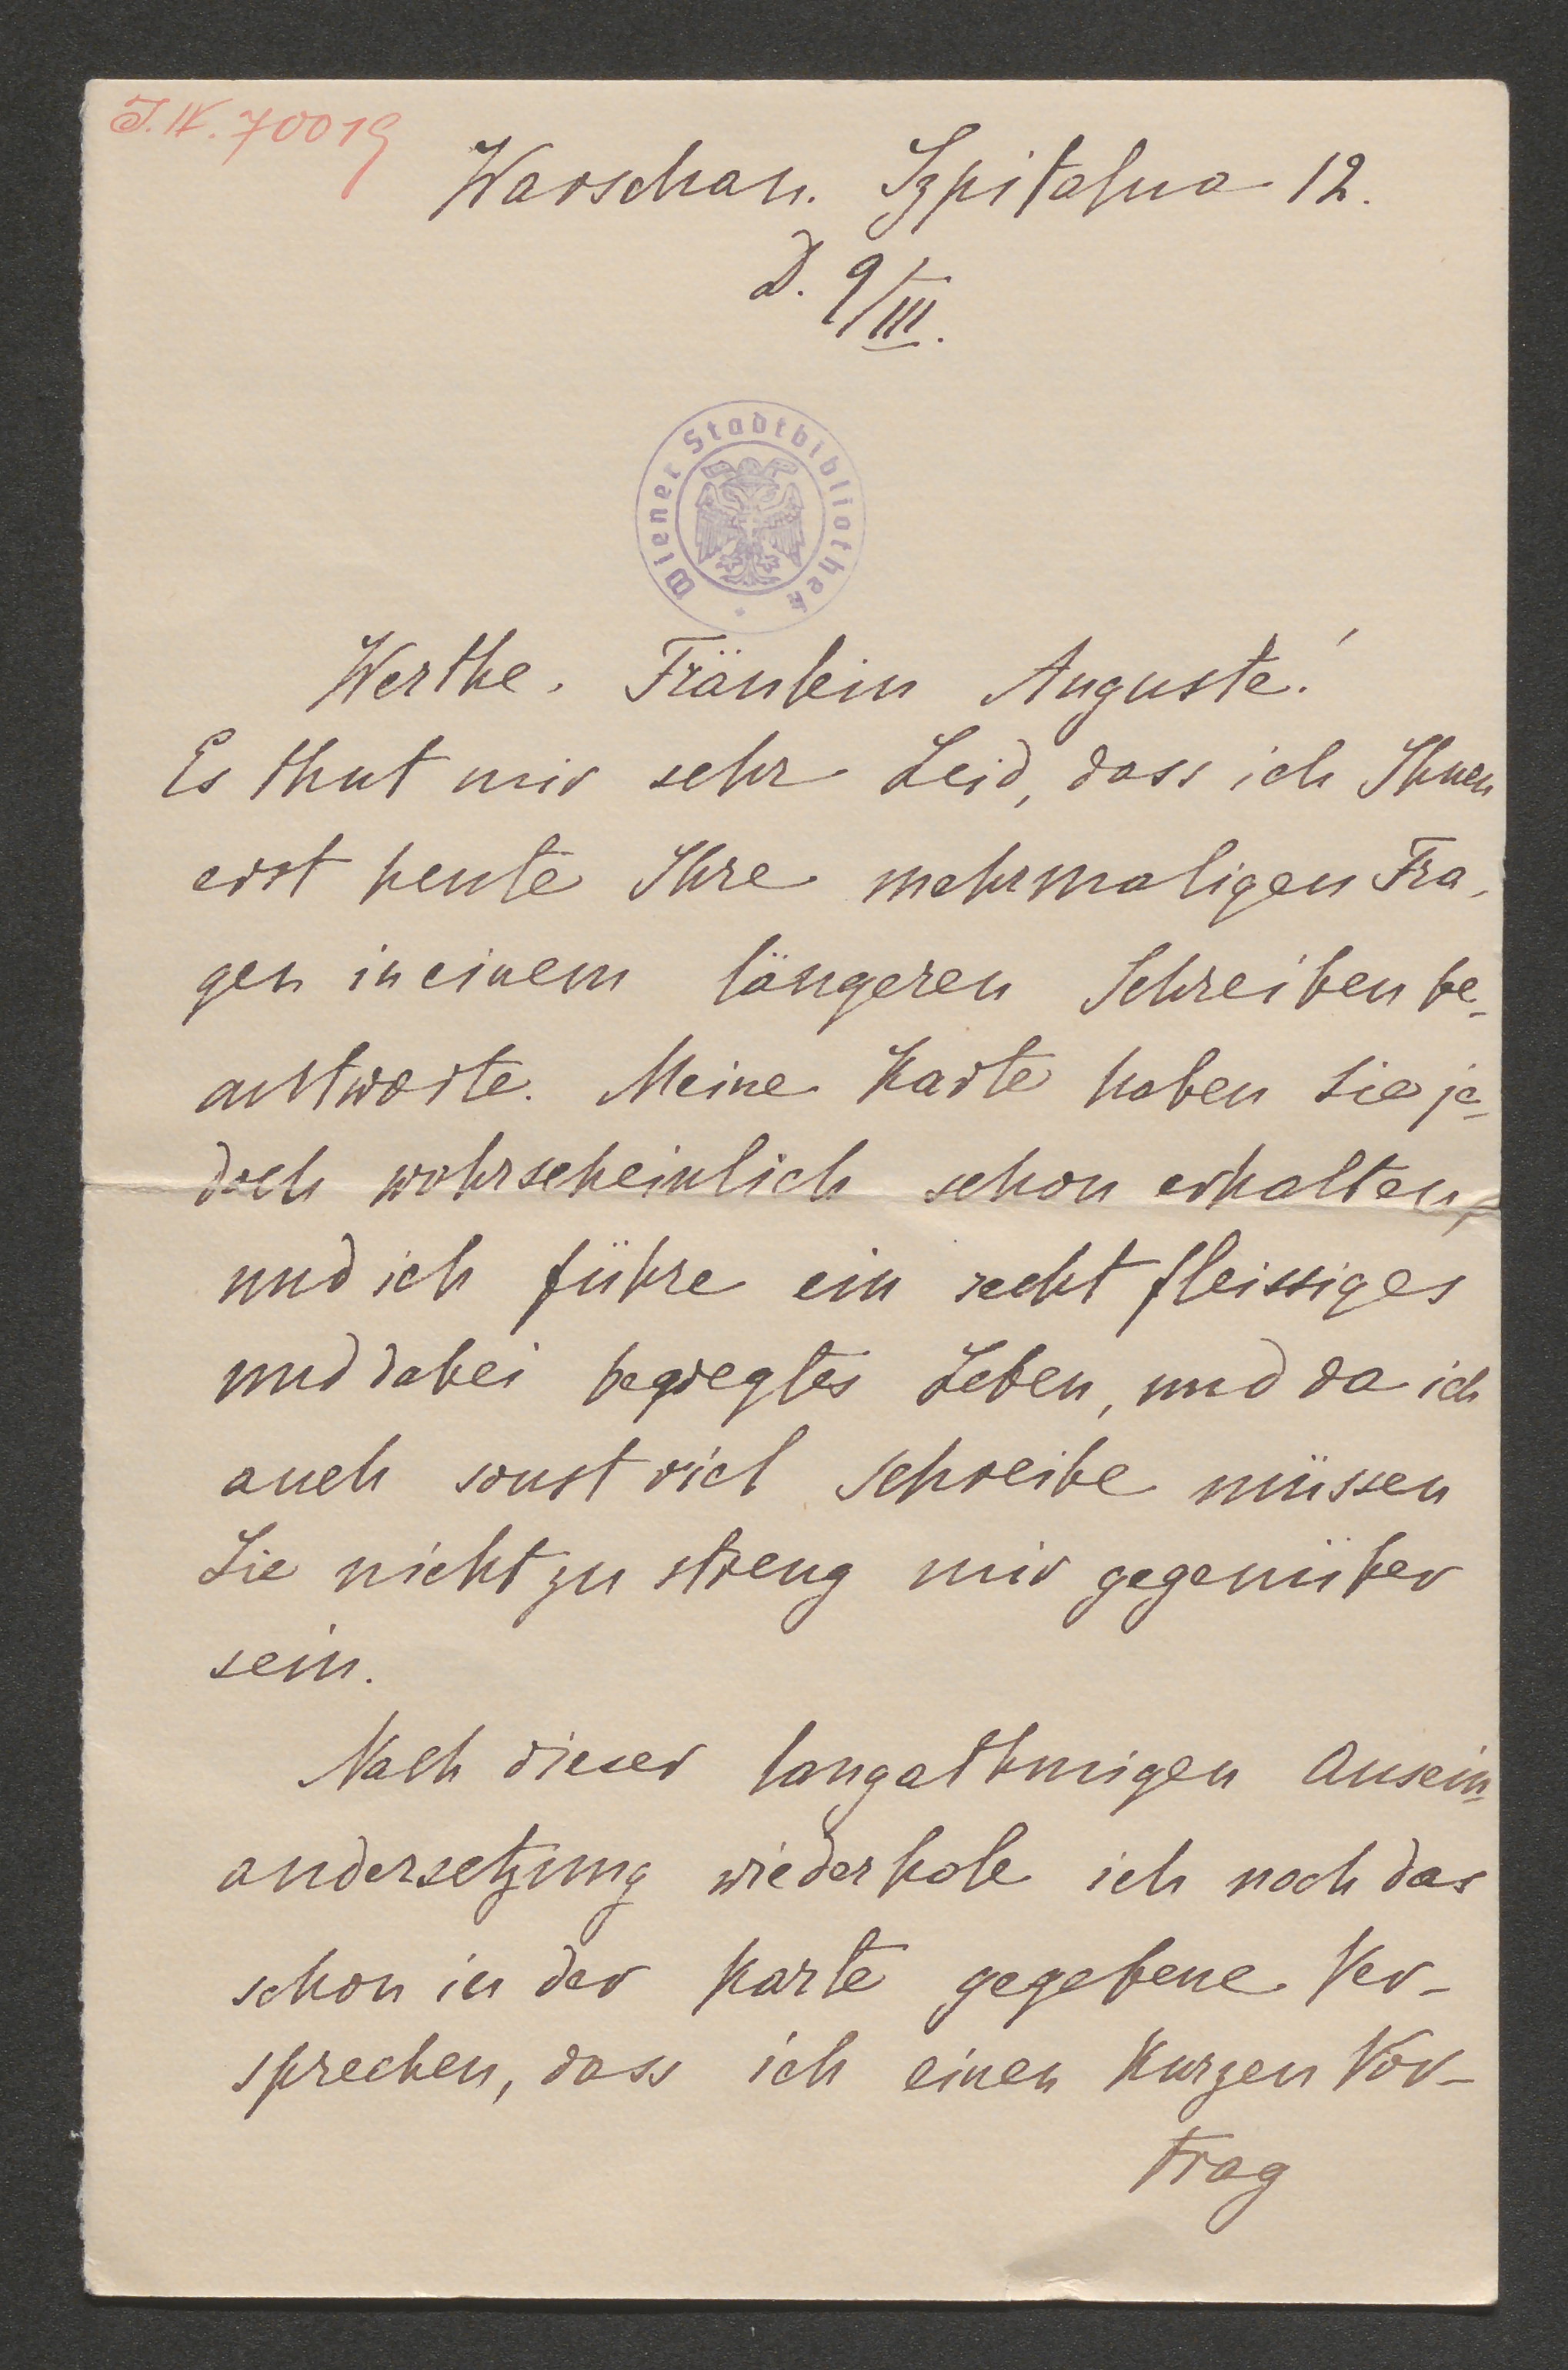 J.N. 70019
Warschau. Szpitalna 12.
D. 9/III.
Wiener Stadtbibliothek
Werthe. Fräulein Auguste!
Es thut mir sehr Leid, dass ich Ihnen
erst heute Ihre mehrmaligen Fra-
gen in einem längeren Schreiben be-
antworte. Meine Karte haben Sie je-
doch wahrscheinlich schon erhalten,
und ich führe ein recht fleissiges
und dabei bewegtes Leben, und da ich
auch sonst viel schreibe müssen
Sie nicht zu streng mir gegenüber
sein.
Nach dieser langathmigen Ausein-
andersetzung wiederhole ich noch das
schon in der Karte gegebene Ver-
sprechen, dass ich einen kurzen Vor-
trag